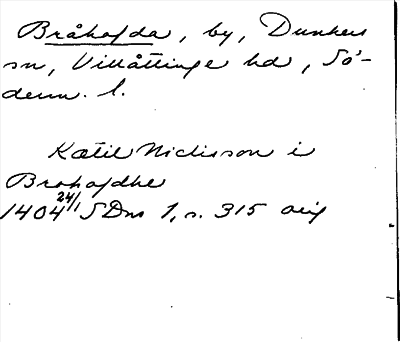 Bråhofda, by, Dunkers
sn, Villåttinge hd, Sö-
derm. l.
Kætil Niclisson i
Brohofdhe
1404 24/1 SDns 1, s. 315 orig